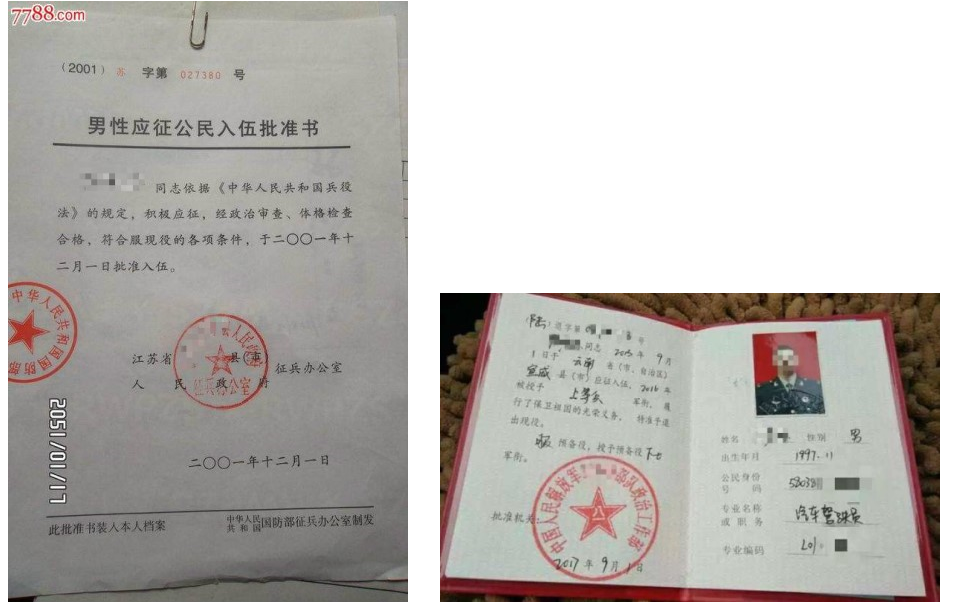 7788.com
(2001) 苏 字第 027380 号
男性应征公民入伍批准书
同志依据《中华人民共和国兵役
法》的规定，积极应征，经政治审查、体格检查
合格，符合服现役的各项条件，于二〇〇一年十
二月一日批准入伍。
中华人民共和国国防部
江苏省 县(市)
人民政府 征兵办公室
人民政府
征兵办公室
二〇〇一年十二月一日
此批准书装入本人档案
中华人民共和国国防部征兵办公室制发
2051/01/17
(陆) 退字第 号
同志 2015 年 9 月
1 日于 云南 省(市、自治区)
宣威 县(市)应征入伍，2016 年
被授予 上等兵 军衔，履
行了保卫祖国的光荣义务，特准予退
出现役。
服 预备役，授予预备役 下士
军衔。
批准机关：
中国人民解放军 部队政治工作部
八一
2017 年 9 月 1 日
姓名 性别 男
出生年月 1997.11
公民身份
号 码 53038
专业名称
或职务 汽车驾驶员
专业编码 201